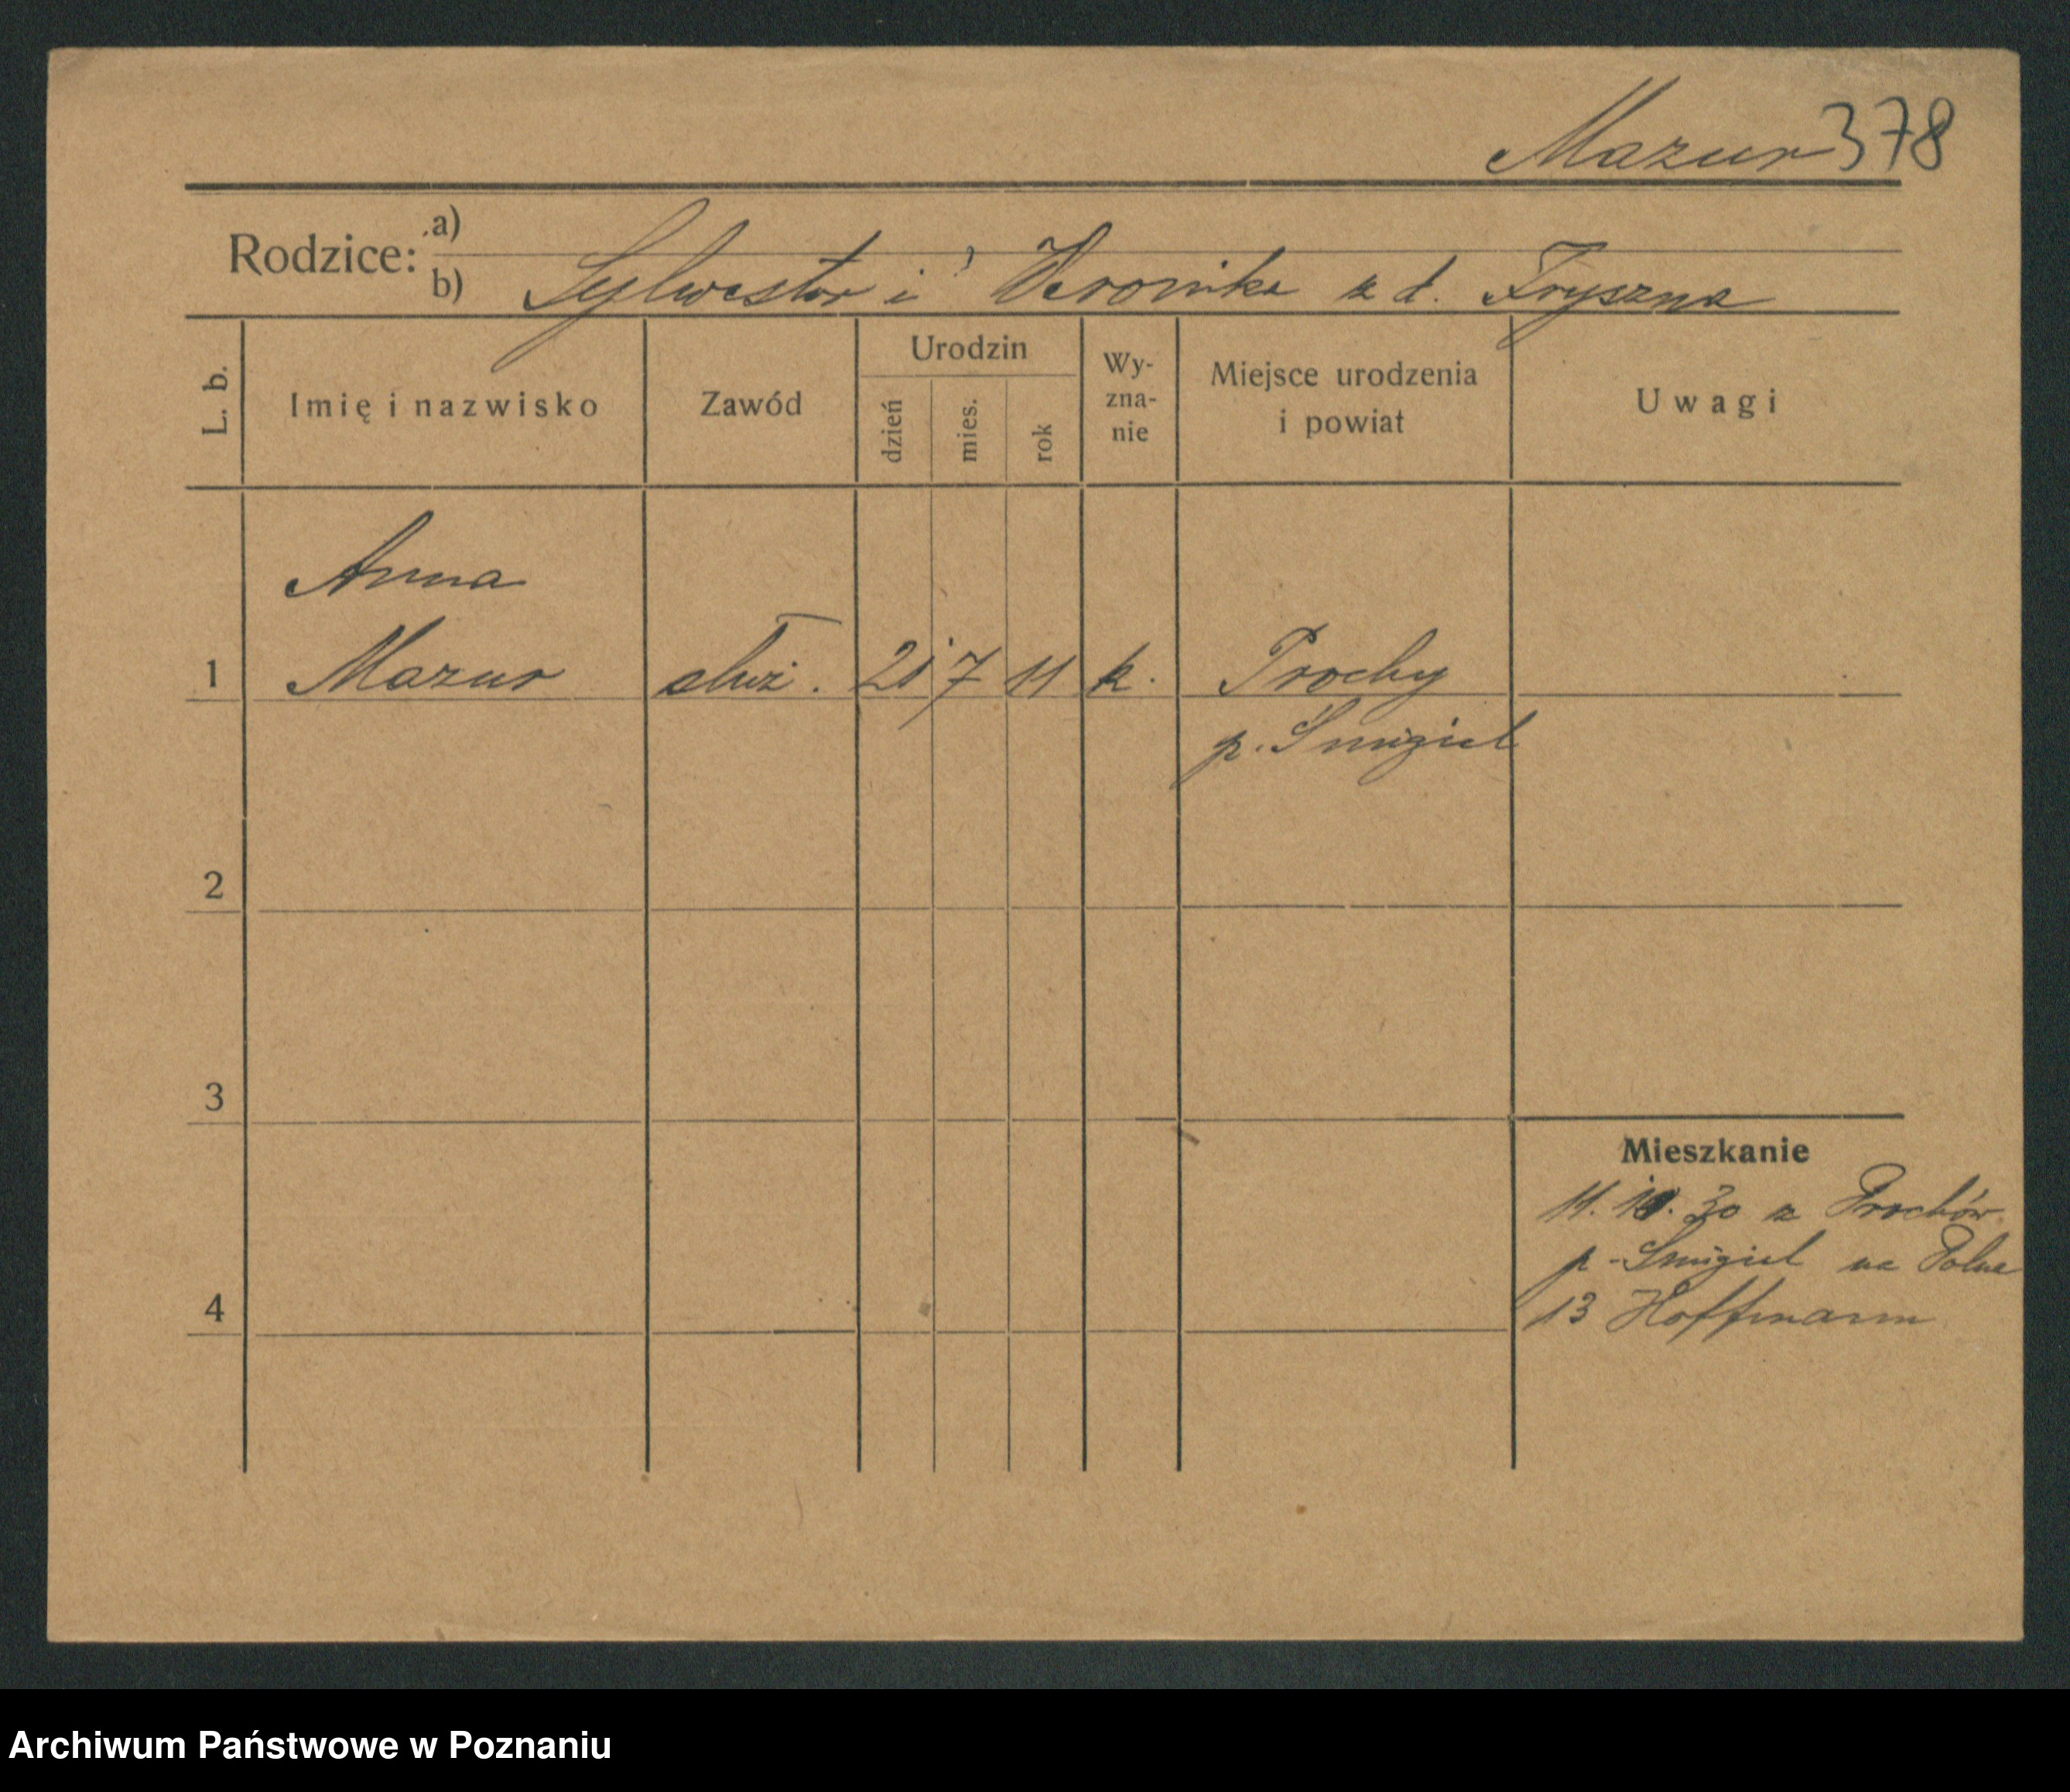 Mazur 378
Rodzice: a)
b) Sylwester i Weronika z d. Fryszna
L. b.
Imię i nazwisko
Zawód
Urodzin
dzień
mies.
rok
Wy-
zna-
nie
Miejsce urodzenia
i powiat
Uwagi
Anna
1 Mazur służ. 21 7 11 k. Prochy
p. Śmigiel
2
3
4
Mieszkanie
11. 10. 30 z Prochów
p. Śmigiel na Polna
13 Hoffmann
Archiwum Państwowe w Poznaniu